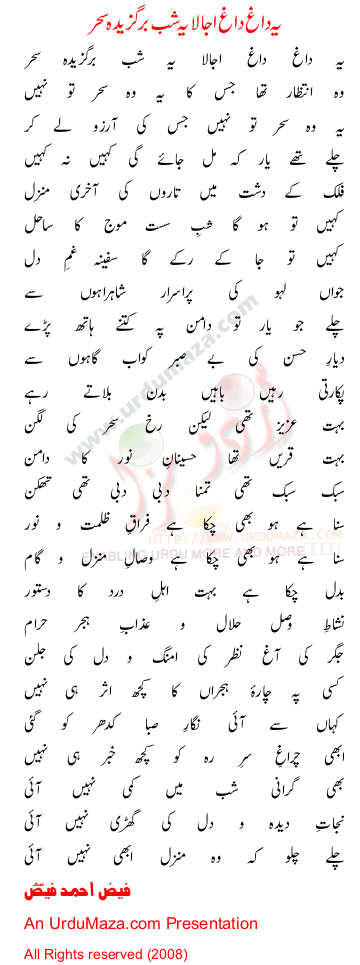 یہ داغ داغ اجالا یہ شب برگزیدہ سحر
یہ داغ داغ اجالا یہ شب برگزیدہ سحر
وہ انتظار تھا جس کا یہ وہ سحر تو نہیں
یہ وہ سحر تو نہیں جس کی آرزو لے کر
چلے تھے یار کہ مل جائے گی کہیں نہ کہیں
فلک کے دشت میں تاروں کی آخری منزل
کہیں تو ہو گا شبِ سست موج کا ساحل
کہیں تو جا کے رکے گا سفینہ غمِ دل
جواں لہو کی پراسرار شاہراہوں سے
چلے جو یار تو دامن پہ کتنے ہاتھ پڑے
دیارِ حسن کی بے صبر کواب گاہوں سے
پکارتی رہیں باہیں بدن بلاتے رہے
بہت عزیز تھی لیکن رخِ سحر کی لگن
بہت قریں تھا حسینانِ نور کا دامن
سبک سبک تھی تمنا دبی دبی تھی تھکن
سنا ہے ہو بھی چکا ہے فراقِ ظلمت و نور
سنا ہے ہو بھی چکا ہے وصالِ منزل و گام
بدل چکا ہے بہت اہلِ درد کا دستور
نشاطِ وصل حلال و عذابِ ہجر حرام
جگر کی آغ نظر کی امنگ و دل کی جلن
کسی پہ چارۂ ہجراں کا کچھ اثر ہی نہیں
کہاں سے آئی نگارِ صبا کدھر کو گئی
ابھی چراغِ سرِ رہ کو کچھ خبر ہی نہیں
بھی گرانی شب میں کمی نہیں آئی
نجاتِ دیدہ و دل کی گھڑی نہیں آئی
چلے چلو کہ وہ منزل ابھی نہیں آئی
فیض احمد فیض
An UrduMaza.com Presentation
All Rights reserved (2008)
www.urdumaza.com
اُردو مزا
HTTP://WWW.URDUMAZA.COM
ENABLING URDU MORE AND MORE